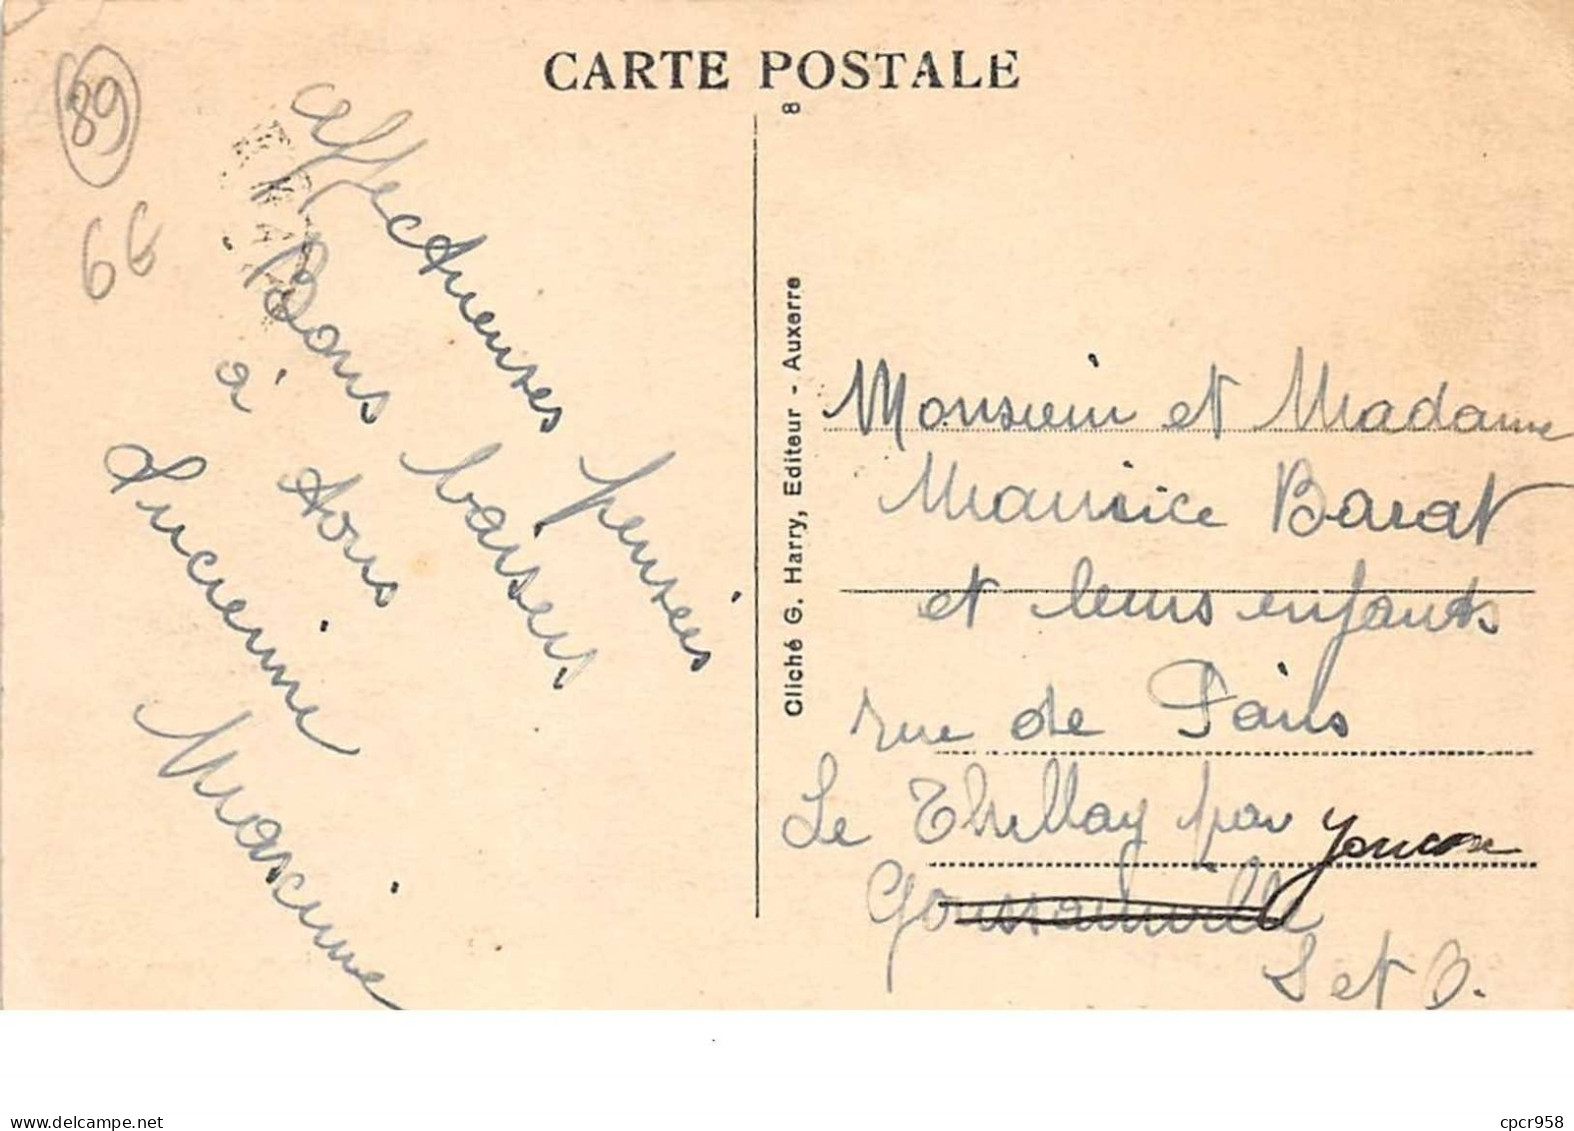 CARTE POSTALE
89
6€
Affectueuses pensées
Bons baisers
à tous
Lucienne
8
Cliché G. Harry, Editeur - Auxerre
Monsieur et Madame
Maurice Barat
et leurs enfants
rue de Paris
Le Thillay par
Goussainville
S et O.
www.delcampe.net
cpcr958